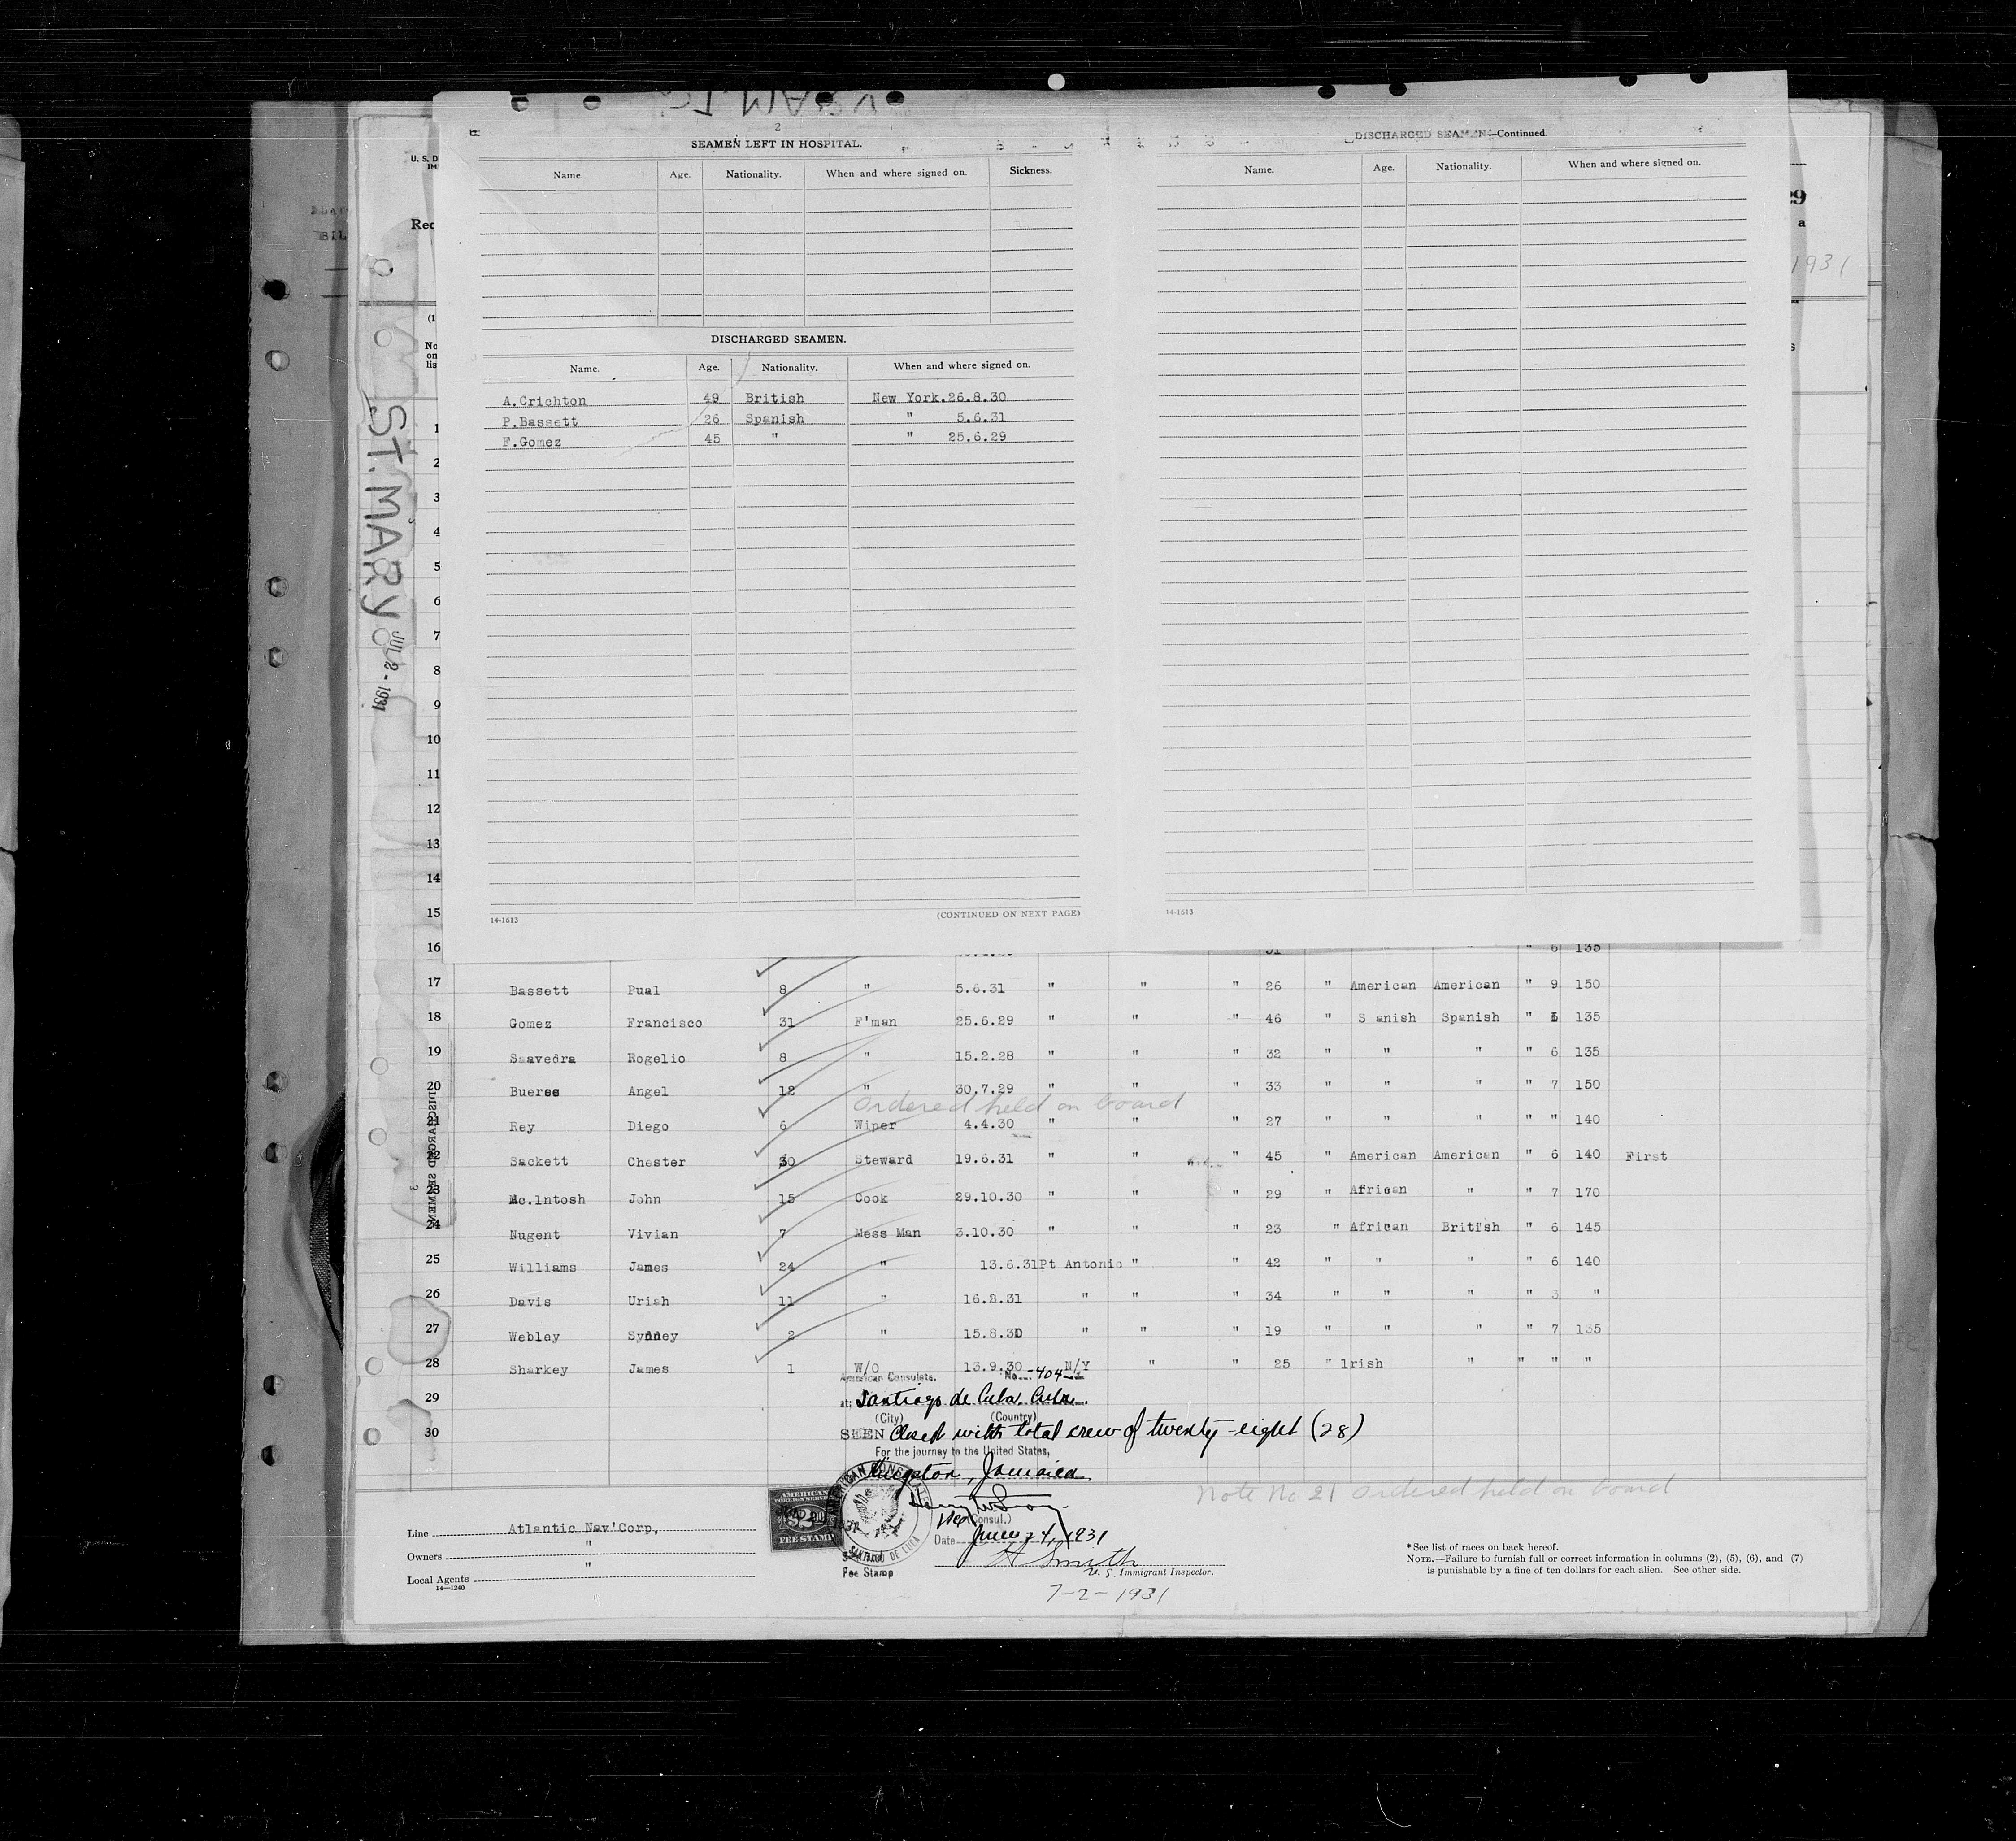 ST. MARY
2
SEAMEN LEFT IN HOSPITAL.
Name. Age. Nationality. When and where signed on. Sickness.
DISCHARGED SEAMEN.
Name. Age. Nationality. When and where signed on.
A.Crichton 49 British New York.26.8.30
P.Bassett 26 Spanish " 5.6.31
F.Gomez 45 " " 25.6.29
14-1613 (CONTINUED ON NEXT PAGE)
DISCHARGED SEAMEN.—Continued.
Name. Age. Nationality. When and where signed on.
14-1613
U. S. D
IM
Rec
29
a
1931
(1
No
on
lis
s
ST. MARY JUL 2 - 1931
1
2
3
4
5
6
7
8
9
10
11
12
13
14
15
16 31 " " " 6 135
17 Bassett Pual 8 " 5.6.31 " " " 26 " American American " 9 150
18 Gomez Francisco 31 F'man 25.6.29 " " " 46 " S anish Spanish " 135
19 Saavedra Rogelio 8 " 15.2.28 " " " 32 " " " " 6 135
20 Angel 12 " 30.7.29 " " " 33 " " " " 7 150
Ordered held on board
21 Rey Diego 6 Wiper 4.4.30 " " " 27 " " " " " 140
22 Sackett Chester 30 Steward 19.6.31 " " " 45 " American American " 6 140 First
23 Mc.lntosh John 15 Cook 29.10.30 " " " 29 " African " " 7 170
24 Nugent Vivian 7 Mess Man 3.10.30 " " " 23 " African British " 6 145
25 Williams James 24 " 13.6.31 Pt Antonio " " 42 " " " " 6 140
26 Davis Uriah 11 " 16.2.31 " " " 34 " " " " "
27 Webley Sydney 2 " 15.8.30 " " " 19 " " " " 7 135
28 Sharkey James 1 W/O 13.9.30 N/Y " " 25 " lrish " " " "
29
30
DISCHARGED SEAMEN
American Consulate. No. 404
at: Santiago de Cuba, Cuba.
(City) (Country)
SEEN Closed with total crew of twenty-eight (28)
For the journey to the United States,
Kingston, Jamaica
(Consul.)
Date June 24, 1931
AMERICAN
FOREIGN SERVICE
FEE STAMP
AMERICAN CONSULATE
SANTIAGO DE CUBA
Fee Stamp
Note No 21 ordered held on board
Line Atlantic Nav'Corp,
Owners "
Local Agents "
14—1240
A Smith
U. S. Immigrant Inspector.
7-2-1931
*See list of races on back hereof.
NOTE.—Failure to furnish full or correct information in columns (2), (5), (6), and (7)
is punishable by a fine of ten dollars for each alien. See other side.